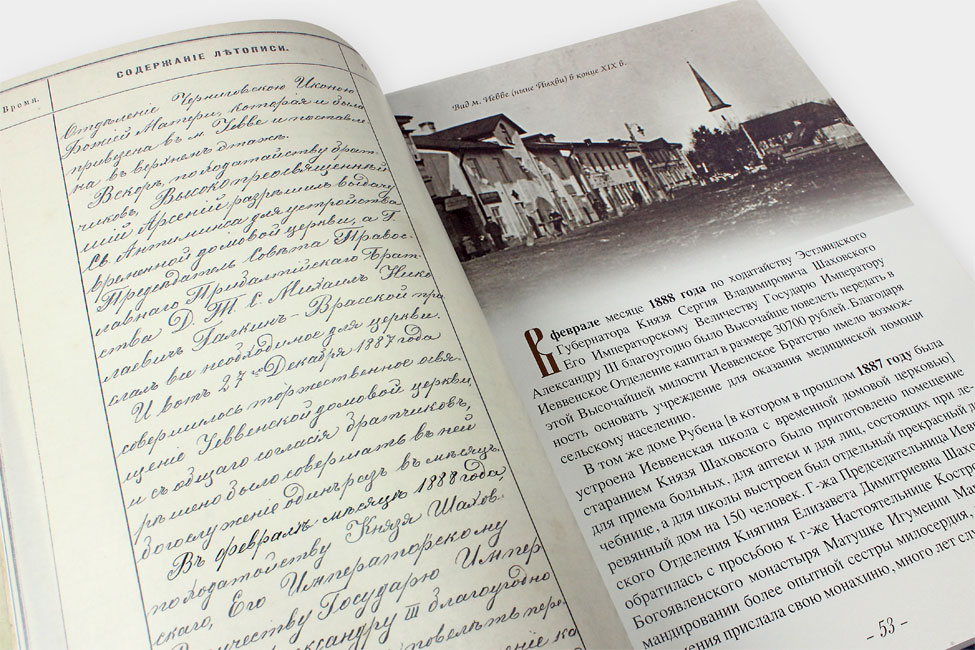 Время.
СОДЕРЖАНІЕ ЛѢТОПИСИ.
Отдѣленіе Черниговскою Иконою
Божіей Матери, которая и была
приведена въ м. Іевве и поставле
на въ верхнемъ этажѣ.
Вскорѣ, по ходатайству Брат-
чиковъ, Высокопреосвященный
шій Арсеній разрѣшилъ выдачу
Св. Антиминса для устройства
временной домовой церкви, а Г.
Предсѣдатель Совѣта Правос-
лавнаго Прибалтійскаго Брат-
ства Д. Т. С. Михаилъ Нико
лаевичъ Галкинъ-Врасской при
слалъ все необходимое для церкви.
И вотъ 27го Декабря 1887 года
совершилось торжественное освя-
щеніе Іеввенской домовой церкви
и съ общаго согласія Братчиковъ,
рѣшено было совершать въ ней
богослуженіе одинъ разъ въ мѣсяцъ.
Въ февралѣ мѣсяцѣ 1888 года,
по ходатайству Князя Шахов-
скаго, Его Императорскому
Величеству Государю Импер-
Александру III благоугодно
повелѣть пере-
Вид м. Иевве (ныне Йыхви) в конце XIX в.
В феврале месяце 1888 года по ходатайству Эстляндского
Губернатора Князя Сергия Владимировича Шаховского
Его Императорскому Величеству Государю Императору
Александру III благоугодно было Высочайше повелеть передать в
Иеввенское Отделение капитал в размере 30700 рублей. Благодаря
этой Высочайшей милости Иеввенское Братство имело возмож-
ность основать учреждение для оказания медицинской помощи
сельскому населению.
В том же доме Рубена [в котором в прошлом 1887 году была
устроена Иеввенская школа с временной домовой церковью]
старанием Князя Шаховского было приготовлено помещение
для приема больных, для аптеки и для лиц, состоящих при ле-
чебнице, а для школы выстроен был отдельный прекрасный де-
ревянный дом на 150 человек. Г-жа Председательница Иевве
ского Отделения Княгиня Елизавета Димитриевна Шахо
обратилась с просьбою к г-же Настоятельнице Костро
Богоявленского монастыря Матушке Игумении Мар
мандировании более опытной сестры милосердия,
ения прислала свою монахиню, много лет сл
– 53 –